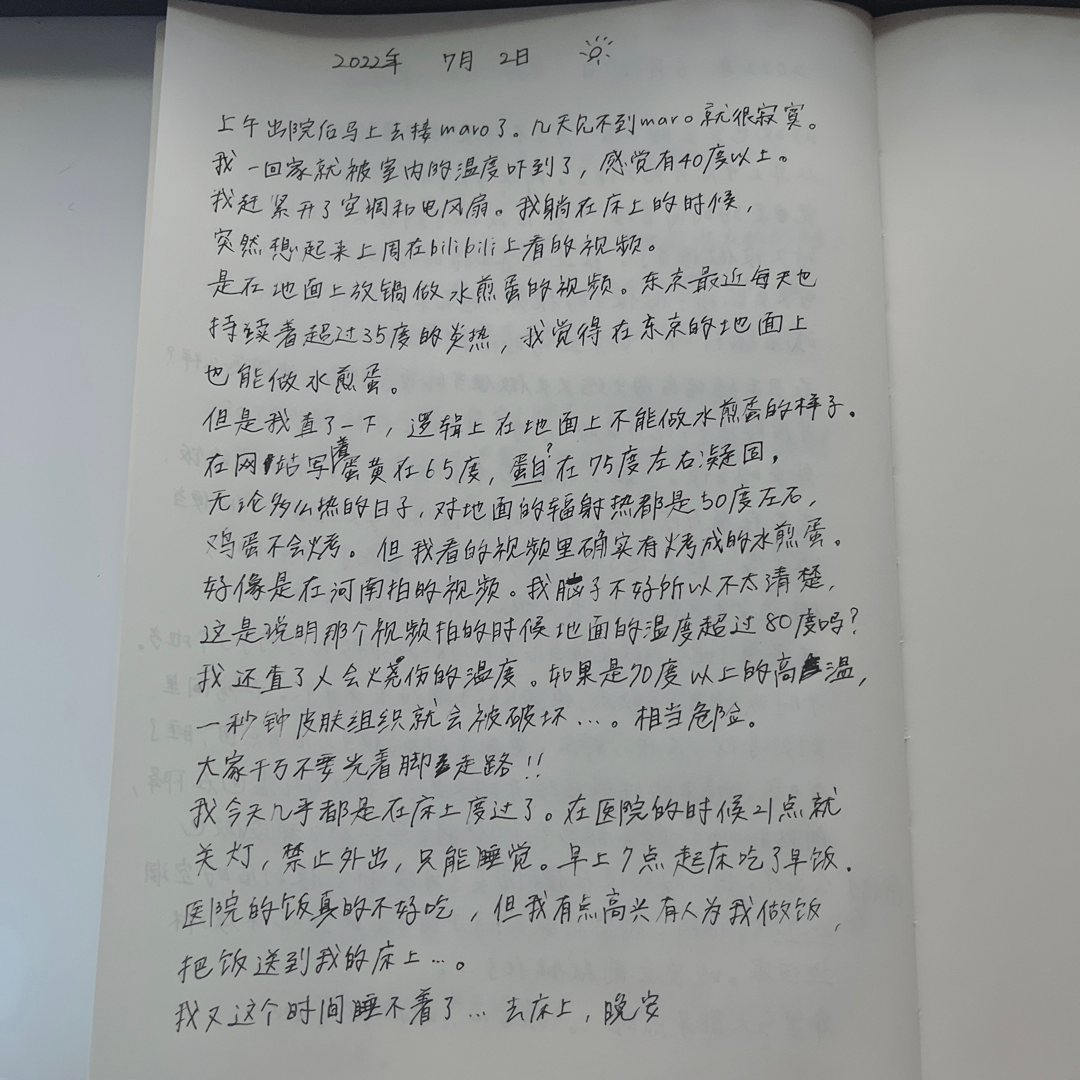 2022年 7月 2日
上午出院后马上去接maro了。几天见不到maro就很寂寞。
我一回家就被室内的温度吓到了，感觉有40度以上。
我赶紧开了空调和电风扇。我躺在床上的时候，
突然想起来上周在bilibili上看的视频。
是在地面上放锅做水煎蛋的视频。东京最近每天也
持续着超过35度的炎热，我觉得在东京的地面上
也能做水煎蛋。
但是我查了一下，逻辑上在地面上不能做水煎蛋的样子。
在网站写着蛋黄在65度，蛋白?在75度左右凝固。
无论多么热的日子，对地面的辐射热都是50度左右，
鸡蛋不会烤。但我看的视频里确实有烤成的水煎蛋。
好像是在河南拍的视频。我脑子不好所以不太清楚，
这是说明那个视频拍的时候地面的温度超过80度吗？
我还查了人会烧伤的温度。如果是70度以上的高温，
一秒钟皮肤组织就会被破坏…。相当危险。
大家千万不要光着脚走路!!
我今天几乎都是在床上度过了。在医院的时候21点就
关灯，禁止外出，只能睡觉。早上7点起床吃了早饭。
医院的饭真的不好吃，但我有点高兴有人为我做饭，
把饭送到我的床上…。
我又这个时间睡不着了…去床上，晚安